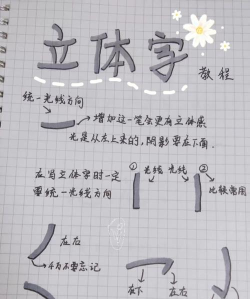 立体字
教程
统一光线方向
增加这一笔会更有立体感
光是从左上来的，阴影要在下角.
在写立体字时一定
要统一光线方向
① 光线 光线 ②
比较常用
左右
千万不要忘记
左下
左右